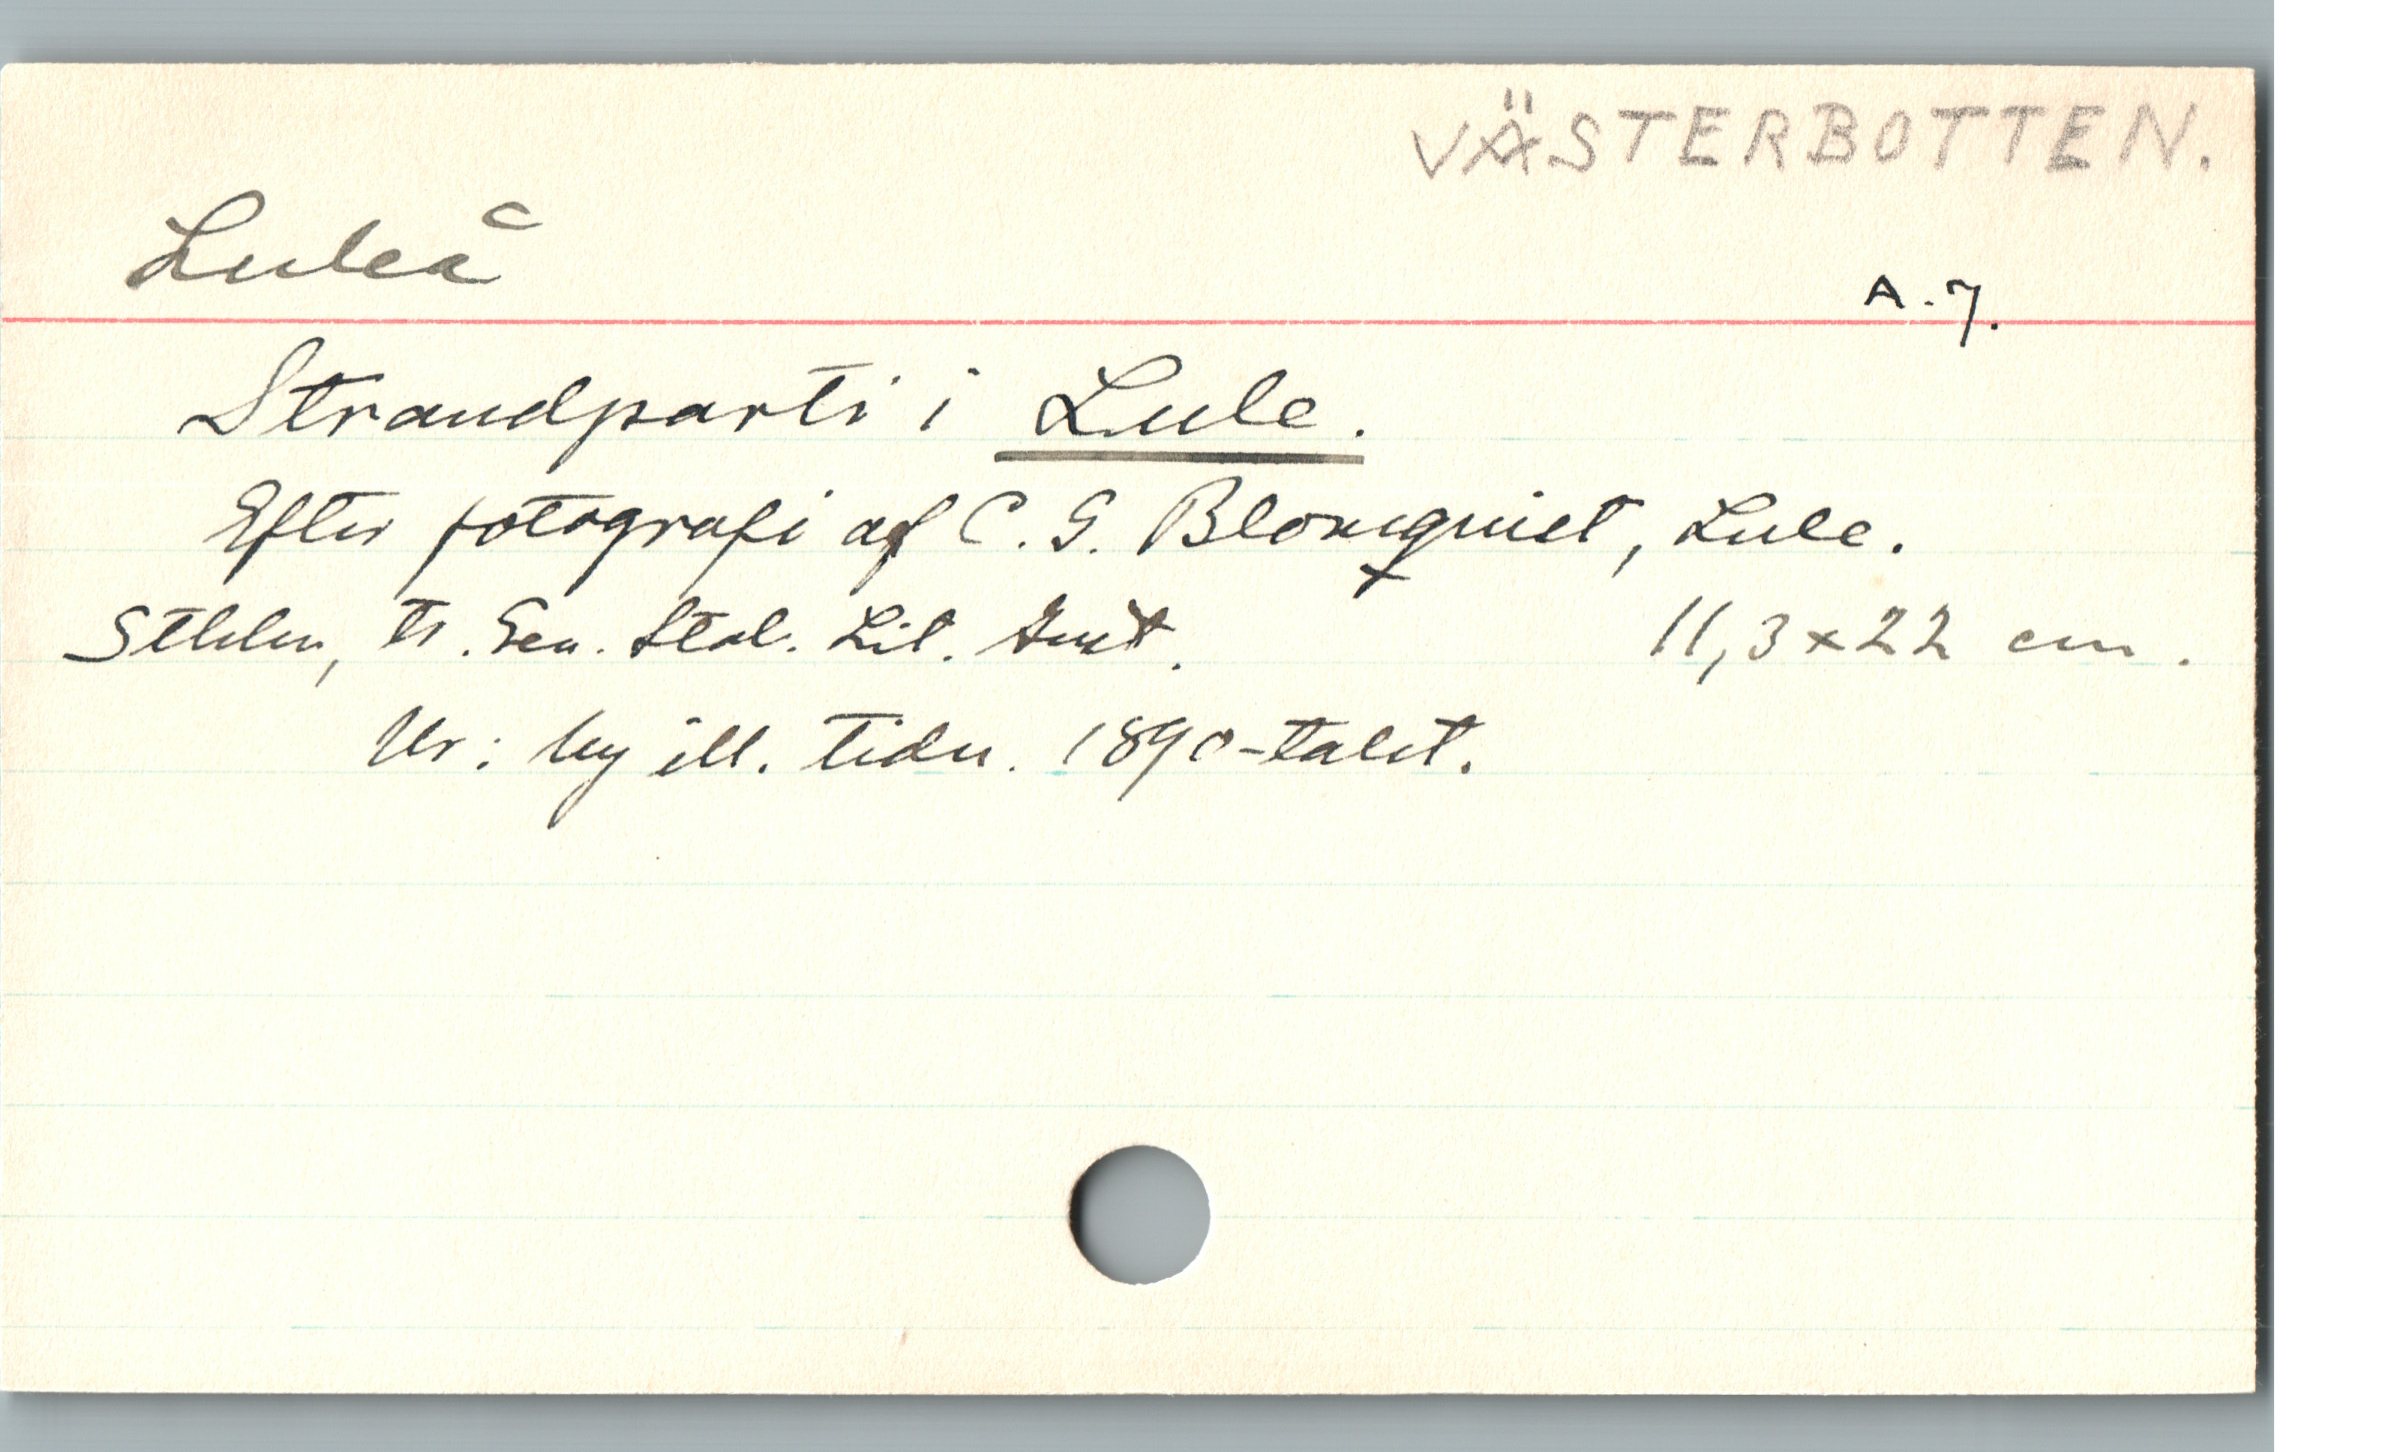 VÄSTERBOTTEN.
Luleå
A.7.
Strandparti i Lule.
Efter fotografi af C. G. Blomquist, Lule.
Sthlm, tr. Gen. Stab. Lit. Inst. 11,3 x 22 cm.
Ur: Ny ill. tidn. 1890-talet.